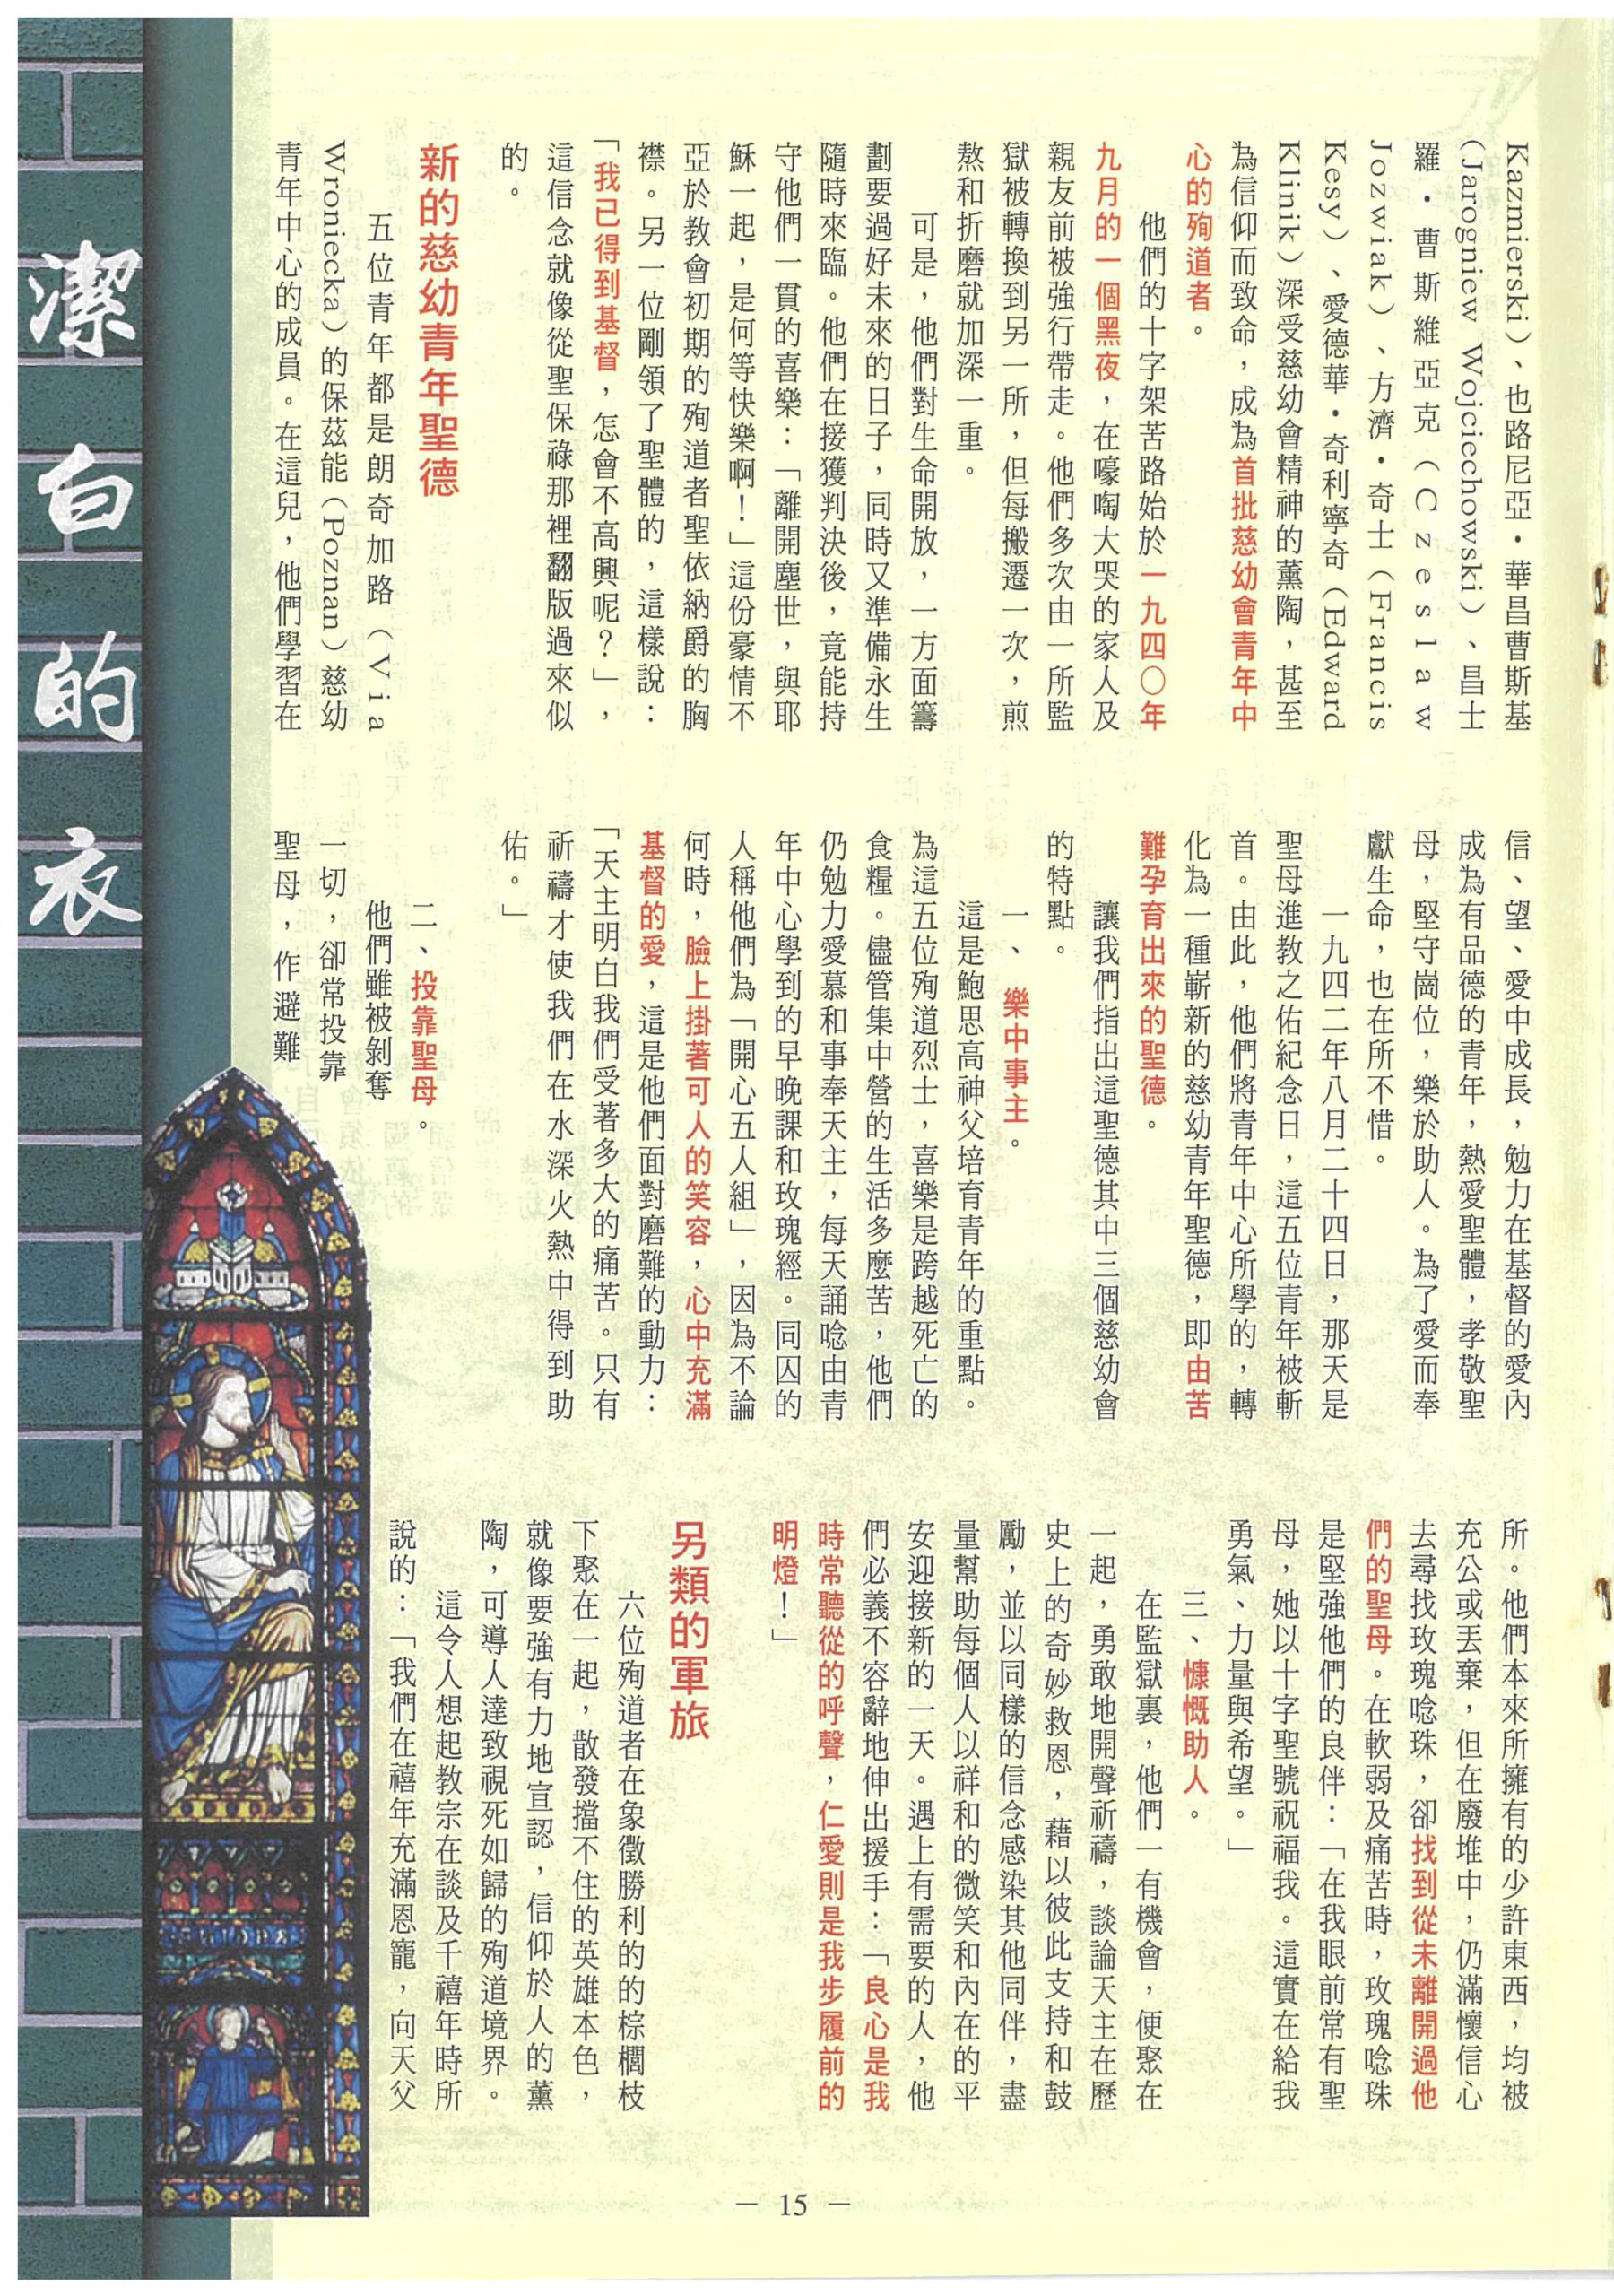 潔白的衣
Kazmierski)、也路尼亞·華昌曹斯基
(Jarogniew Wojciechowski)、昌士
羅·曹斯維亞克(Czeslaw
Jozwiak)、方濟·奇士(Francis
Kesy)、愛德華·奇利寧奇(Edward
Klinik)深受慈幼會精神的薰陶，甚至
為信仰而致命，成為首批慈幼會青年中
心的殉道者。
他們的十字架苦路始於一九四〇年
九月的一個黑夜，在嚎啕大哭的家人及
親友前被強行帶走。他們多次由一所監
獄被轉換到另一所，但每搬遷一次，煎
熬和折磨就加深一重。
可是，他們對生命開放，一方面籌
劃要過好未來的日子，同時又準備永生
隨時來臨。他們在接獲判決後，竟能持
守他們一貫的喜樂：「離開塵世，與耶
穌一起，是何等快樂啊！」這份豪情不
亞於教會初期的殉道者聖依納爵的胸
襟。另一位剛領了聖體的，這樣說：
「我已得到基督，怎會不高興呢？」，
這信念就像從聖保祿那裡翻版過來似
的。
新的慈幼青年聖德
五位青年都是朗奇加路(Via
Wroniecka)的保茲能(Poznan)慈幼
青年中心的成員。在這兒，他們學習在
信、望、愛中成長，勉力在基督的愛內
成為有品德的青年，熱愛聖體，孝敬聖
母，堅守崗位，樂於助人。為了愛而奉
獻生命，也在所不惜。
一九四二年八月二十四日，那天是
聖母進教之佑紀念日，這五位青年被斬
首。由此，他們將青年中心所學的，轉
化為一種嶄新的慈幼青年聖德，即由苦
難孕育出來的聖德。
讓我們指出這聖德其中三個慈幼會
的特點。
一、樂中事主。
這是鮑思高神父培育青年的重點。
為這五位殉道烈士，喜樂是跨越死亡的
食糧。儘管集中營的生活多麼苦，他們
仍勉力愛慕和事奉天主，每天誦唸由青
年中心學到的早晚課和玫瑰經。同囚的
人稱他們為「開心五人組」，因為不論
何時，臉上掛著可人的笑容，心中充滿
基督的愛，這是他們面對磨難的動力：
「天主明白我們受著多大的痛苦。只有
祈禱才使我們在水深火熱中得到助
佑。」
二、投靠聖母。
他們雖被剝奪
一切，卻常投靠
聖母，作避難
所。他們本來所擁有的少許東西，均被
充公或丟棄，但在廢堆中，仍滿懷信心
去尋找玫瑰唸珠，卻找到從未離開過他
們的聖母。在軟弱及痛苦時，玫瑰唸珠
是堅強他們的良伴：「在我眼前常有聖
母，她以十字聖號祝福我。這實在給我
勇氣、力量與希望。」
三、慷慨助人。
在監獄裏，他們一有機會，便聚在
一起，勇敢地開聲祈禱，談論天主在歷
史上的奇妙救恩，藉以彼此支持和鼓
勵，並以同樣的信念感染其他同伴，盡
量幫助每個人以祥和的微笑和內在的平
安迎接新的一天。遇上有需要的人，他
們必義不容辭地伸出援手：「良心是我
時常聽從的呼聲，仁愛則是我步履前的
明燈！」
另類的軍旅
六位殉道者在象徵勝利的的棕櫚枝
下聚在一起，散發擋不住的英雄本色，
就像要強有力地宣認，信仰於人的薰
陶，可導人達致視死如歸的殉道境界。
這令人想起教宗在談及千禧年時所
說的：「我們在禧年充滿恩寵，向天父
— 15 —